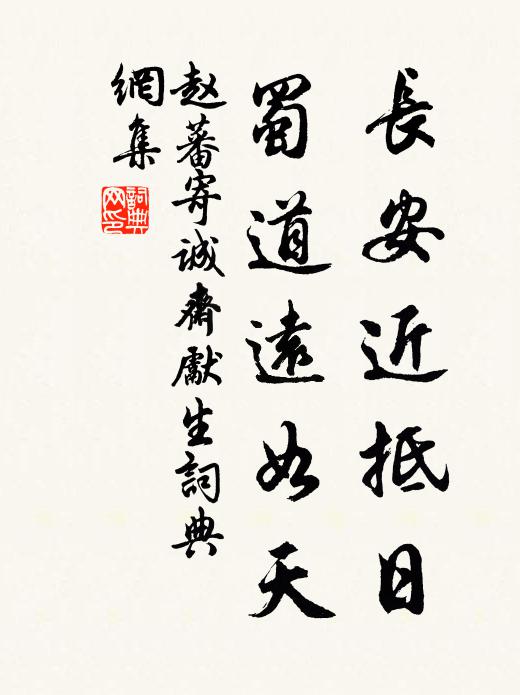 長安近抵日
蜀道遠如天
赵蕃寄诚齋獻生詞典
網集
詞典
网印